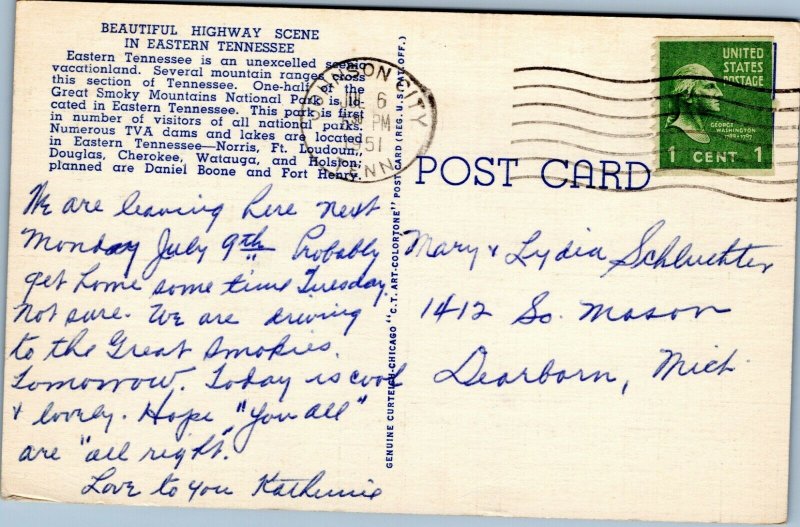 BEAUTIFUL HIGHWAY SCENE
IN EASTERN TENNESSEE
Eastern Tennessee is an unexcelled scenic
vacationland. Several mountain ranges cross
this section of Tennessee. One-half of the
Great Smoky Mountains National Park is lo-
cated in Eastern Tennessee. This park is first
in number of visitors of all national parks.
Numerous TVA dams and lakes are located
in Eastern Tennessee—Norris, Ft. Loudoun,
Douglas, Cherokee, Watauga, and Holston;
planned are Daniel Boone and Fort Henry.
We are leaving here next
Monday July 9th. Probably
get home some time Tuesday.
Not sure. We are driving
to the Great Smokies.
Tomorrow. Today is cool
& lovely. Hope "you all"
are "all right".
Love to you Katherine
GENUINE CURTEICH-CHICAGO "C.T. ART-COLORTONE" POST CARD (REG. U.S. PAT. OFF.)
JOHNSON CITY
JUL 6
PM
1951
TENN.
UNITED
STATES
POSTAGE
GEORGE
WASHINGTON
1789-1797
1 CENT 1
POST CARD
Mary & Lydia Schluchter
1412 So. Mason
Dearborn, Mich